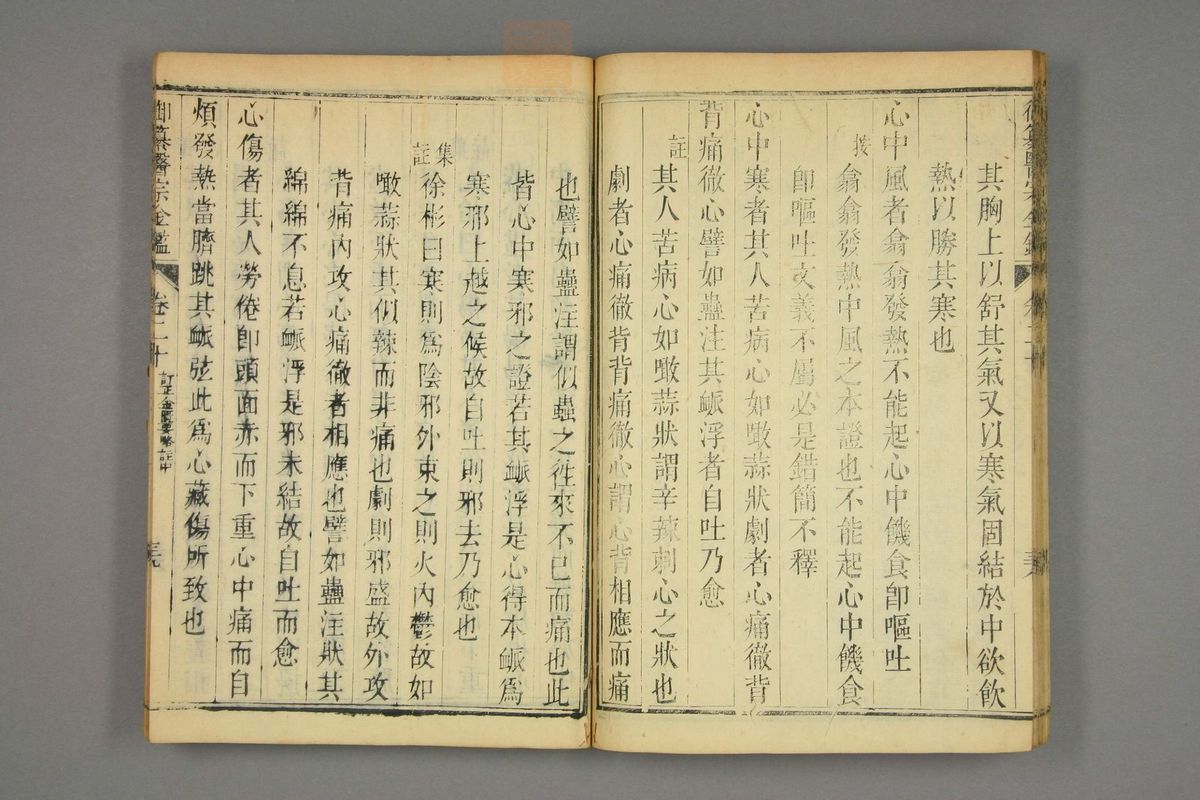 其胸上以舒其氣又以寒氣固結於中欲飲
熱以勝其寒也
心中風者翕翕發熱不能起心中饑食卽嘔吐
按
翕翕發熱中風之本證也不能起心中饑食
卽嘔吐文義不屬必是錯簡不釋
心中寒者其人苦病心如噉蒜狀劇者心痛徹背
背痛徹心譬如蠱注其脈浮者自吐乃愈
註
其人苦病心如噉蒜狀謂辛辣刺心之狀也
劇者心痛徹背背痛徹心謂心背相應而痛
也譬如蠱注謂似蟲之往來不已而痛也此
皆心中寒邪之證若其脈浮是心得本脈爲
寒邪上越之候故自吐則邪去乃愈也
集註
徐彬曰寒則爲陰邪外束之則火內鬱故如
噉蒜狀其似辣而非痛也劇則邪盛故外攻
背痛內攻心痛徹者相應也譬如蠱注狀其
綿綿不息若脈浮是邪未結故自吐而愈
心傷者其人勞倦卽頭面赤而下重心中痛而自
煩發熱當臍跳其脈弦此爲心藏傷所致也
御纂醫宗金鑑
卷二十
訂正金匱要略註中